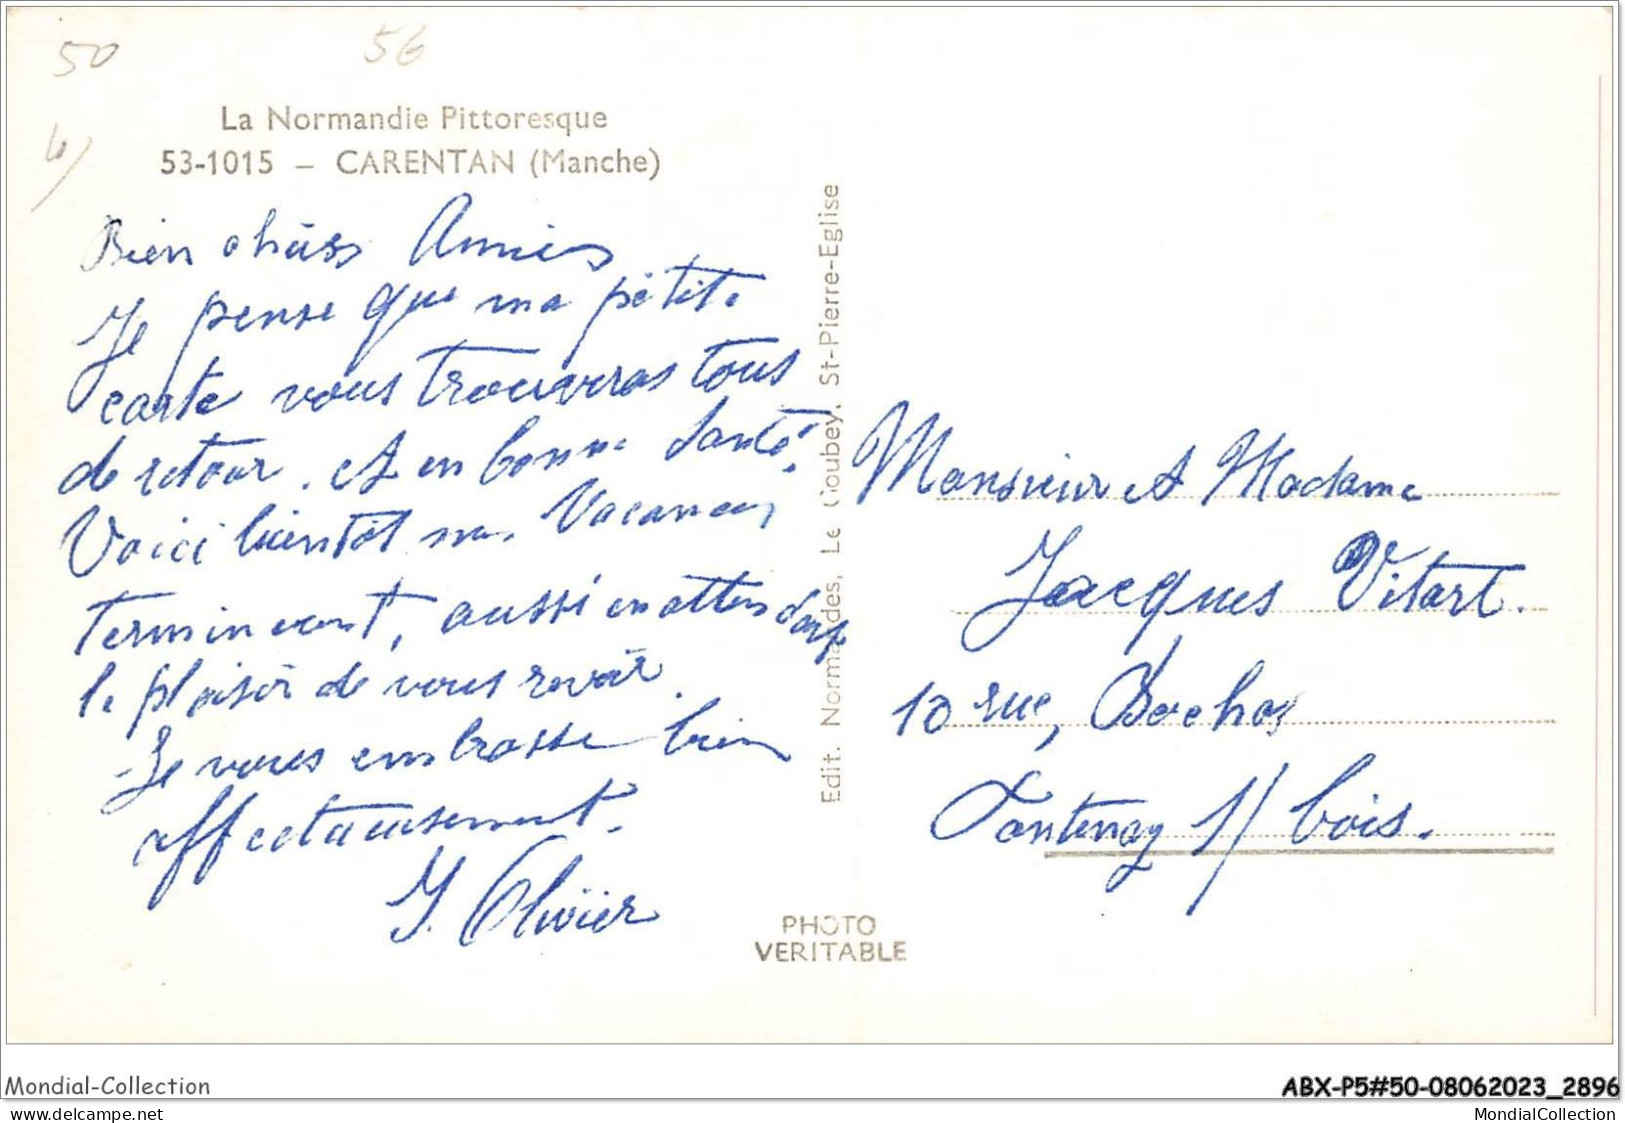 50
56
La Normandie Pittoresque
53-1015 – CARENTAN (Manche)
Bien chers Amies
Je pense que ma petite
carte vous trouverras tous
de retour. et en bonne santé.
Voici bientôt mes Vacances
terminent, aussi en attendant
le plaisir de vous revoir.
Je vous embrasse bien
affectueusement.
Y. Olivier
Edit. Normandes, Le Goubey, St-Pierre-Eglise
PHOTO
VERITABLE
Monsieur et Madame
Jacques Vitart.
10 rue,
Fontenay s/ bois.
Mondial-Collection
ABX-P5#50-08062023_2896
www.delcampe.net
MondialCollection